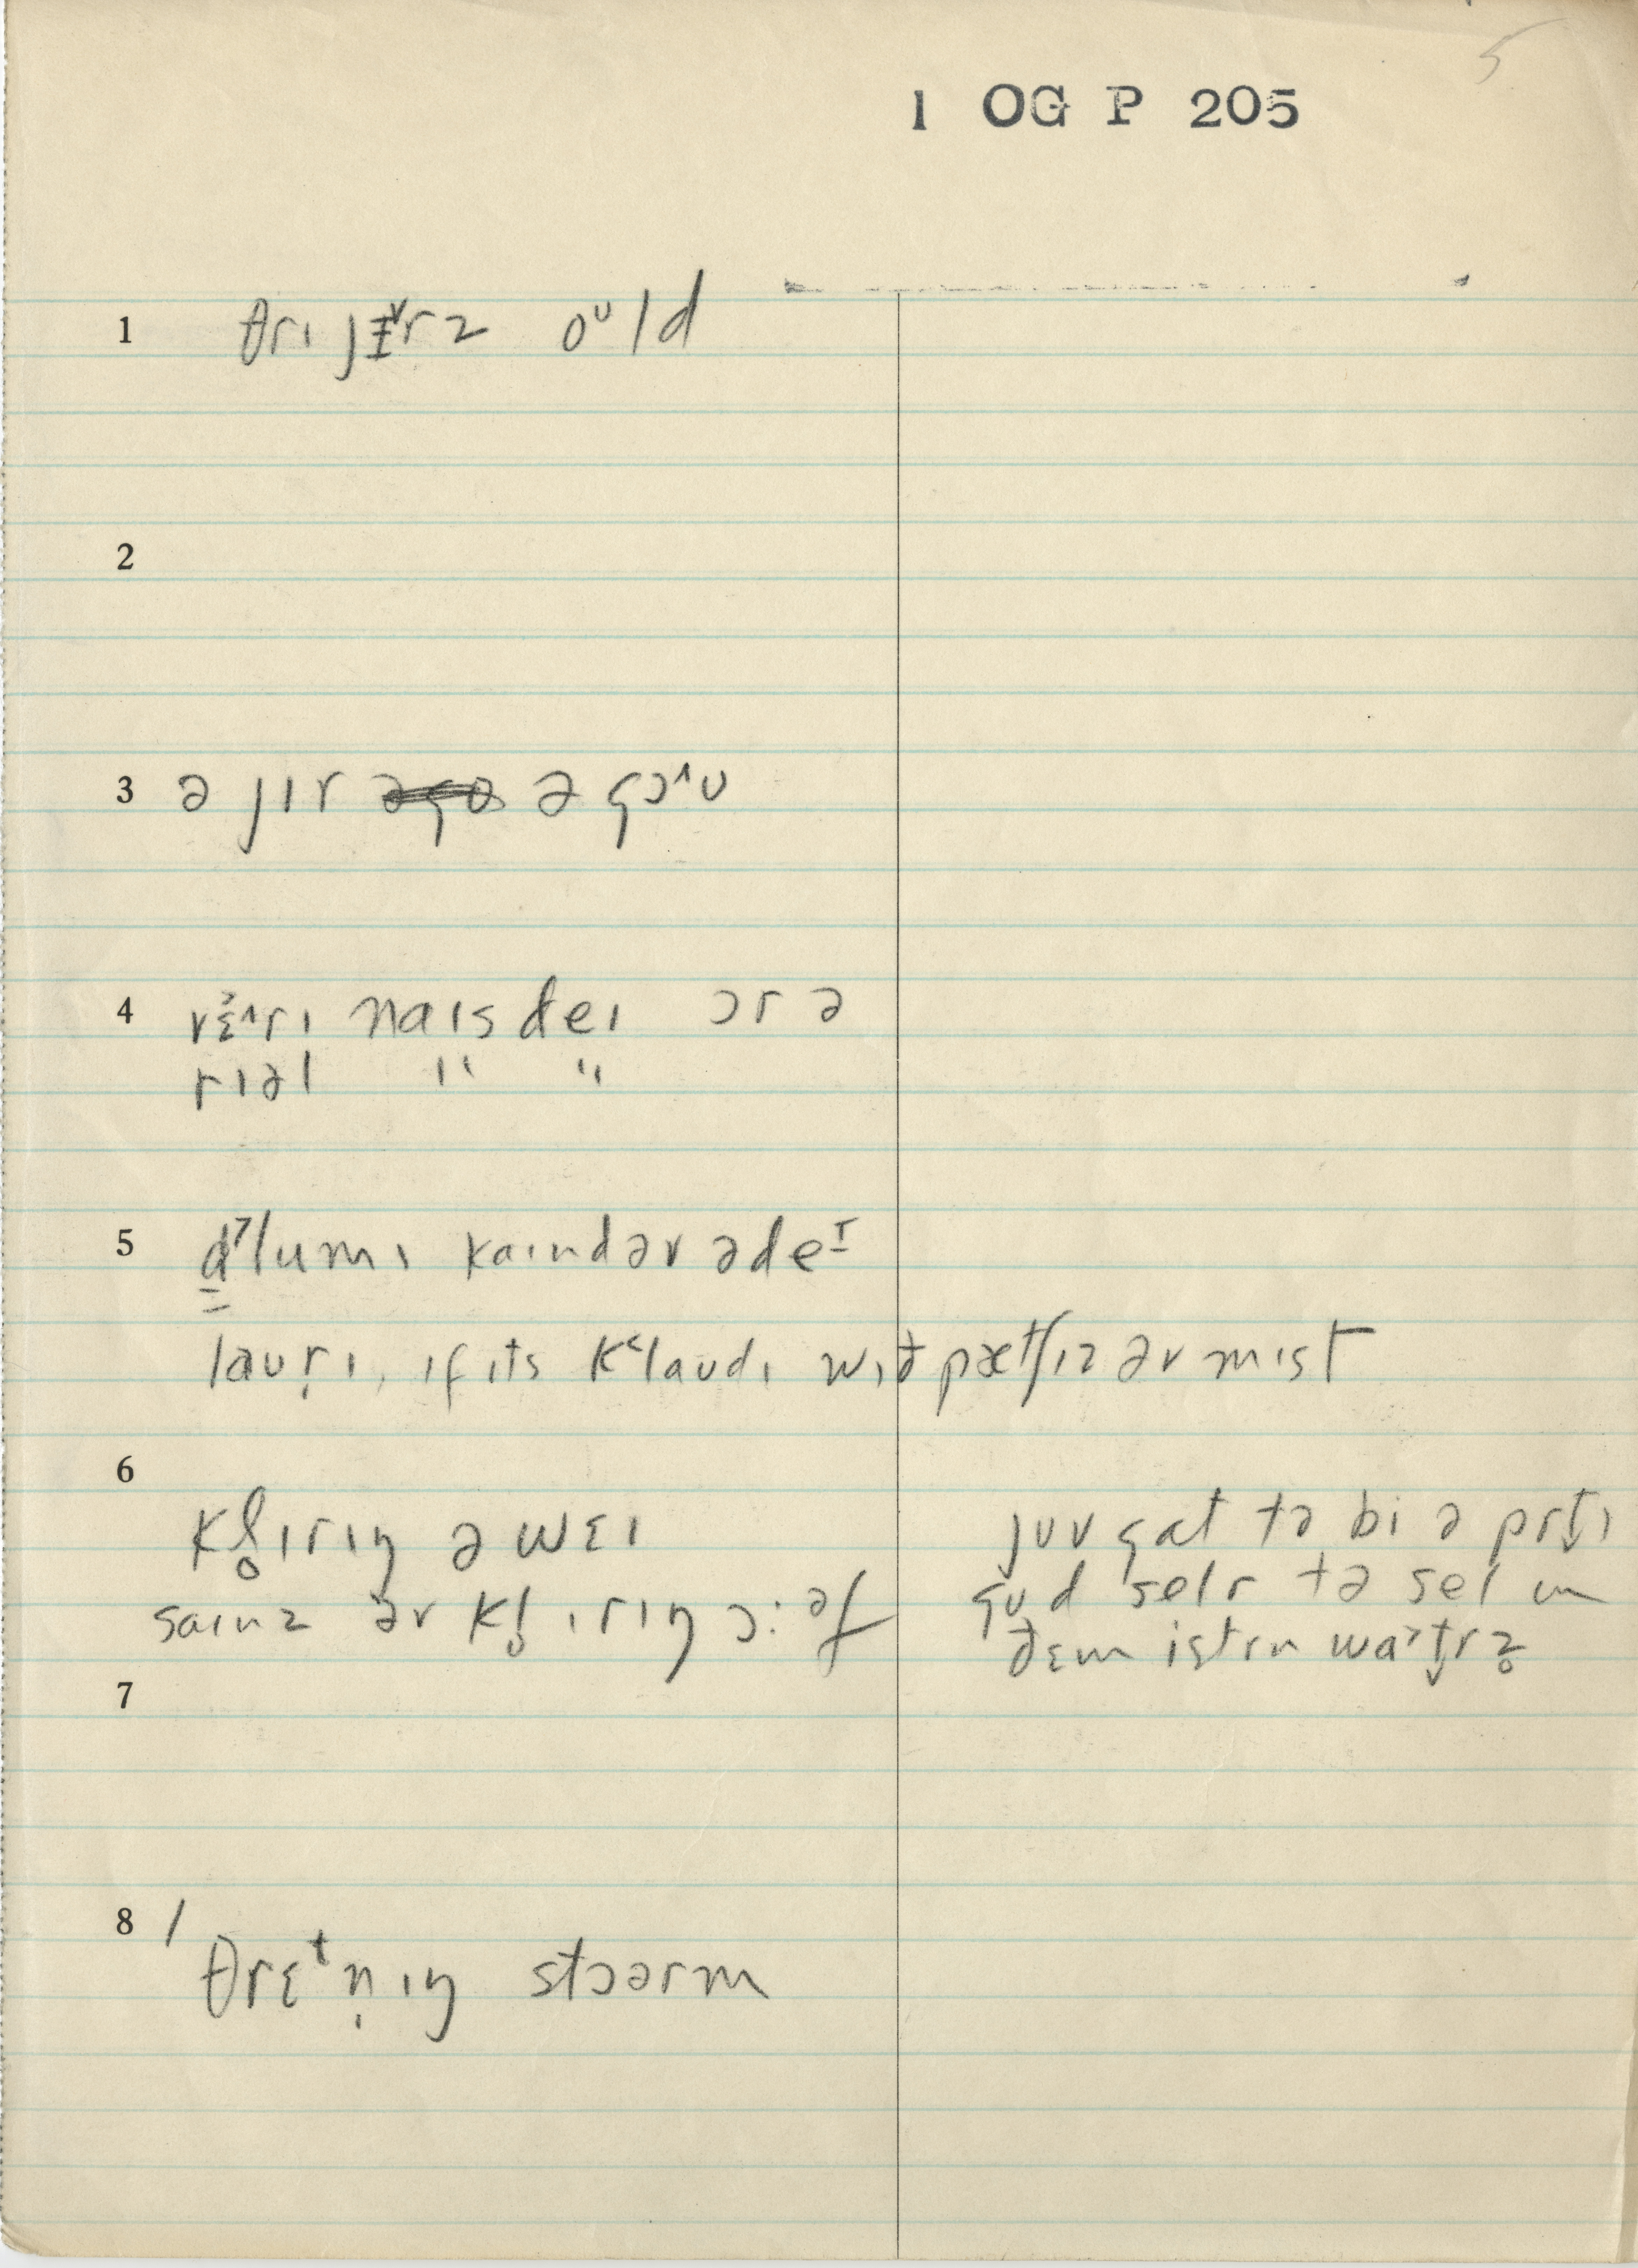 5
1 OG P 205
1 θrɪ jɪ˅rz oᶷld
2
3 ə jɪr ə gɔ˄ʊ
4 vɛ˄rɪ naɪs deɪ ɔr ə
rɪəl " "
5 d̳˃lumɪ kaɪndəv ədeᴵ
laʊṛɪ, ɪf ɪts k˂laʊdɪ wɪð pætʃɪz əv mɪst
6
kl̥ɪrɪŋ ə wɛɪ
saɪnz əv kl̥ɪrɪŋ ɔ:əf
jʊv gat tə bi ə prt̬ɪ
gʊd selr tə sel ɪn
ðɛm istrn wa˃t̬rz̥
7
8 / θrɛᵗn̩ɪŋ stɔərm